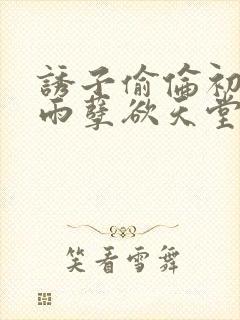 誘子偷倫初
雨孽欲天堂
笑看雪舞